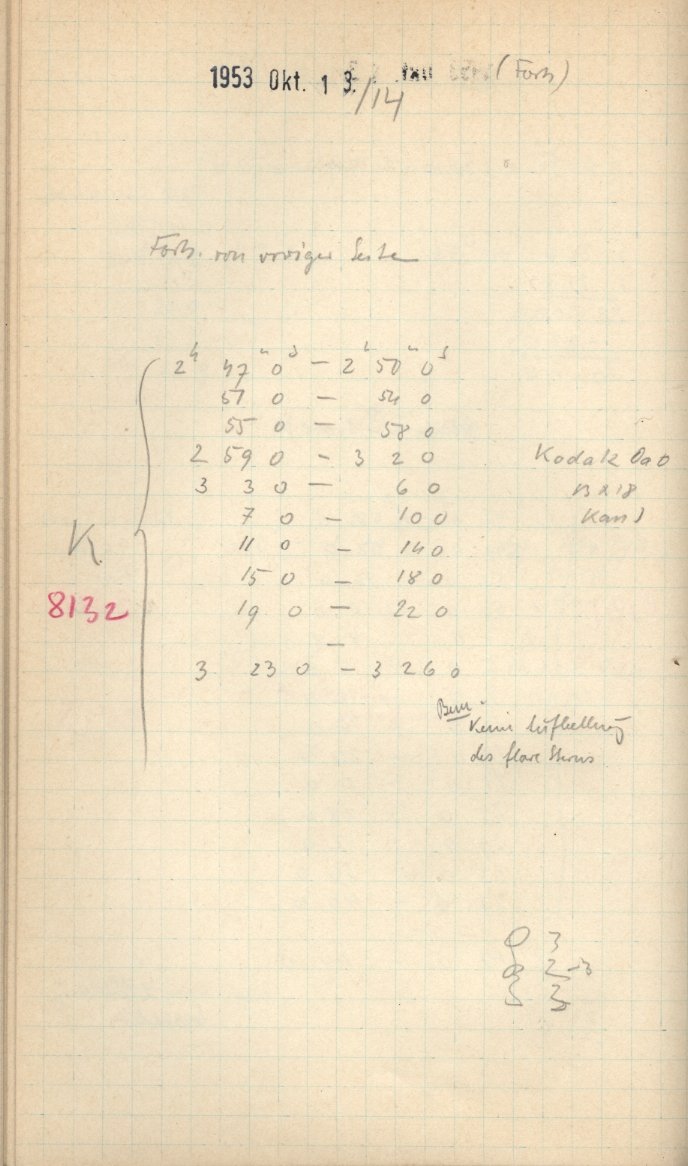 1953 Okt. 13./14 (Forts)
Forts. von voriger Seite
2h 47m 0s – 2h 50m 0s
51 0 – 54 0
55 0 – 58 0
2 59 0 – 3 2 0
Kodak OaO
3 3 0 – 6 0
13x18
7 0 – 10 0
Kass
11 0 – 14 0
K
15 0 – 18 0
8132
19 0 – 22 0
–
3 23 0 – 3 26 0
Bem.
Keine Aufhellung
des flare Sterns
3
2-3
3